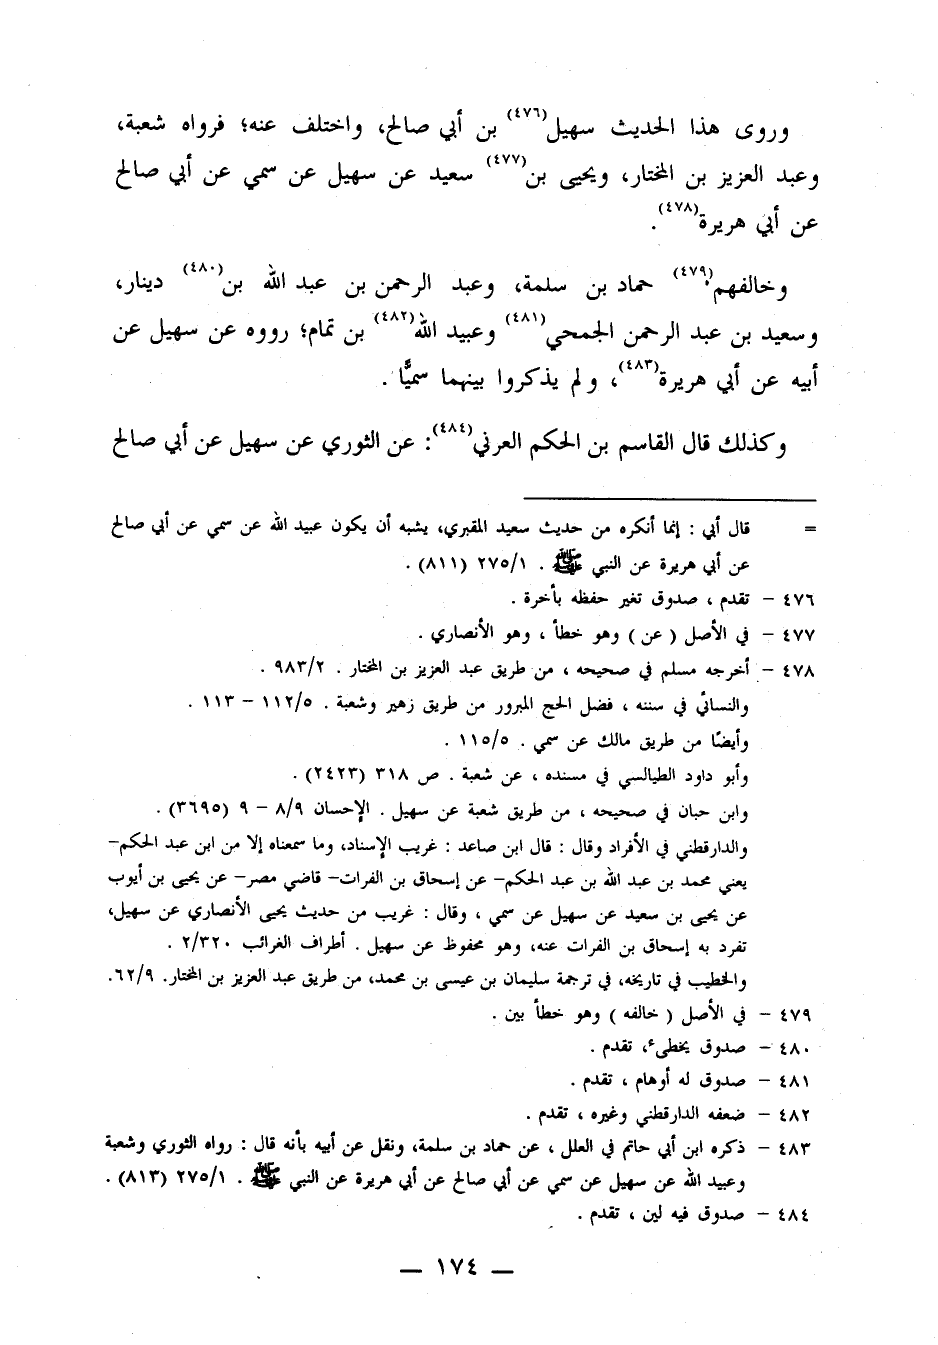 وروى هذا الحديث سهيل(٤٧٦) بن أبي صالح، واختلف عنه؛ فرواه شعبة،
وعبد العزيز بن المختار، ويحيى بن(٤٧٧) سعيد عن سهيل عن سمي عن أبي صالح
عن أبي هريرة(٤٧٨).
وخالفهم(٤٧٩) حماد بن سلمة، وعبد الرحمن بن عبد الله بن(٤٨٠) دينار،
وسعيد بن عبد الرحمن الجمحي(٤٨١) وعبيد الله(٤٨٢) بن تمام؛ رووه عن سهيل عن
أبيه عن أبي هريرة(٤٨٣)، ولم يذكروا بينهما سميًّا.
وكذلك قال القاسم بن الحكم العرني(٤٨٤): عن الثوري عن سهيل عن أبي صالح
= قال أبي : إنما أنكره من حديث سعيد المقبري، يشبه أن يكون عبيد الله عن سمي عن أبي صالح
عن أبي هريرة عن النبي ﷺ . ٢٧٥/١ (٨١١) .
٤٧٦ – تقدم ، صدوق تغير حفظه بأخرة .
٤٧٧ – في الأصل ( عن ) وهو خطأ ، وهو الأنصاري .
٤٧٨ – أخرجه مسلم في صحيحه ، من طريق عبد العزيز بن المختار . ٩٨٣/٢ .
والنسائي في سننه ، فضل الحج المبرور من طريق زهير وشعبة . ١١٢/٥ – ١١٣ .
وأيضًا من طريق مالك عن سمي . ١١٥/٥ .
وأبو داود الطيالسي في مسنده ، عن شعبة . ص ٣١٨ (٢٤٢٣) .
وابن حبان في صحيحه ، من طريق شعبة عن سهيل . الإحسان ٨/٩ – ٩ (٣٦٩٥) .
والدارقطني في الأفراد وقال : قال ابن صاعد : غريب الإسناد، وما سمعناه إلا من ابن عبد الحكم–
يعني محمد بن عبد الله بن عبد الحكم– عن إسحاق بن الفرات– قاضي مصر– عن يحيى بن أيوب
عن يحيى بن سعيد عن سهيل عن سمي ، وقال : غريب من حديث يحيى الأنصاري عن سهيل،
تفرد به إسحاق بن الفرات عنه، وهو محفوظ عن سهيل . أطراف الغرائب ٢/٣٢٠ .
والخطيب في تاريخه، في ترجمة سليمان بن عيسى بن محمد، من طريق عبد العزيز بن المختار. ٦٢/٩.
٤٧٩ – في الأصل ( خالفه ) وهو خطأ بين .
٤٨٠ – صدوق يخطىء، تقدم .
٤٨١ – صدوق له أوهام ، تقدم .
٤٨٢ – ضعفه الدارقطني وغيره ، تقدم .
٤٨٣ – ذكره ابن أبي حاتم في العلل ، عن حماد بن سلمة، ونقل عن أبيه بأنه قال : رواه الثوري وشعبة
وعبيد الله عن سهيل عن سمي عن أبي صالح عن أبي هريرة عن النبي ﷺ . ٢٧٥/١ (٨١٣) .
٤٨٤ – صدوق فيه لين ، تقدم .
– ١٧٤ –